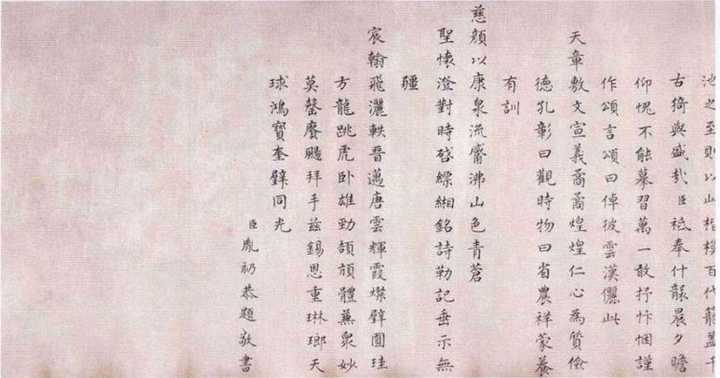 池之至則以楷模百代蓋千
古猗與盛哉臣祗奉什襲晨夕瞻
仰愧不能摹習萬一敢抒忭悃謹
作頌言頌曰倬彼雲漢儷此
天章敷文宣義矞矞煌煌仁心為質儉
德孔彰曰觀時物曰省農祥蒙養
有訓
慈顏以康泉流觱沸山色青蒼
聖懷澄對時啓縹緗銘詩勒記垂示無
疆
宸翰飛灑軼晉邁唐雲輝霞燦璧圓珪
方龍跳虎卧雄勁頡頏體兼眾妙
莫罄賡颺拜手茲錫恩重琳瑯天
球鴻寶奎璧同光
臣胤礽恭題敬書